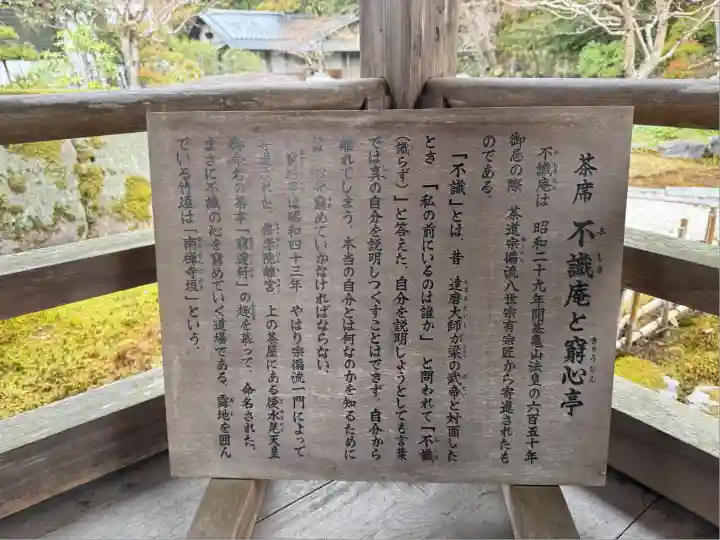 茶席 不識庵と窮心亭
不識庵は 昭和二十九年開基亀山法皇の六百五十年
御忌の際 茶道宗徧流八世宗有宗匠から寄進されたも
のである。
「不識」とは、昔 達磨大師が梁の武帝と対面した
とき 「私の前にいるのは誰か」 と問われて「不識
(識らず)」と答えた。自分を説明しようとしても言葉
では真の自分を説明しつくすことはできず、自分から
離れてしまう。本当の自分とは何なのかを知るために
は 心を窮めていかなければならない。
窮心亭は昭和四十三年 やはり宗徧流一門によって
寄進された。修学院離宮 上の茶屋にある後水尾天皇
御命名の茶亭「窮邃軒」の趣を慕って、命名された。
まさに不識の心を窮めていく道場である。露地を囲ん
でいる竹垣は「南禅寺垣」という。